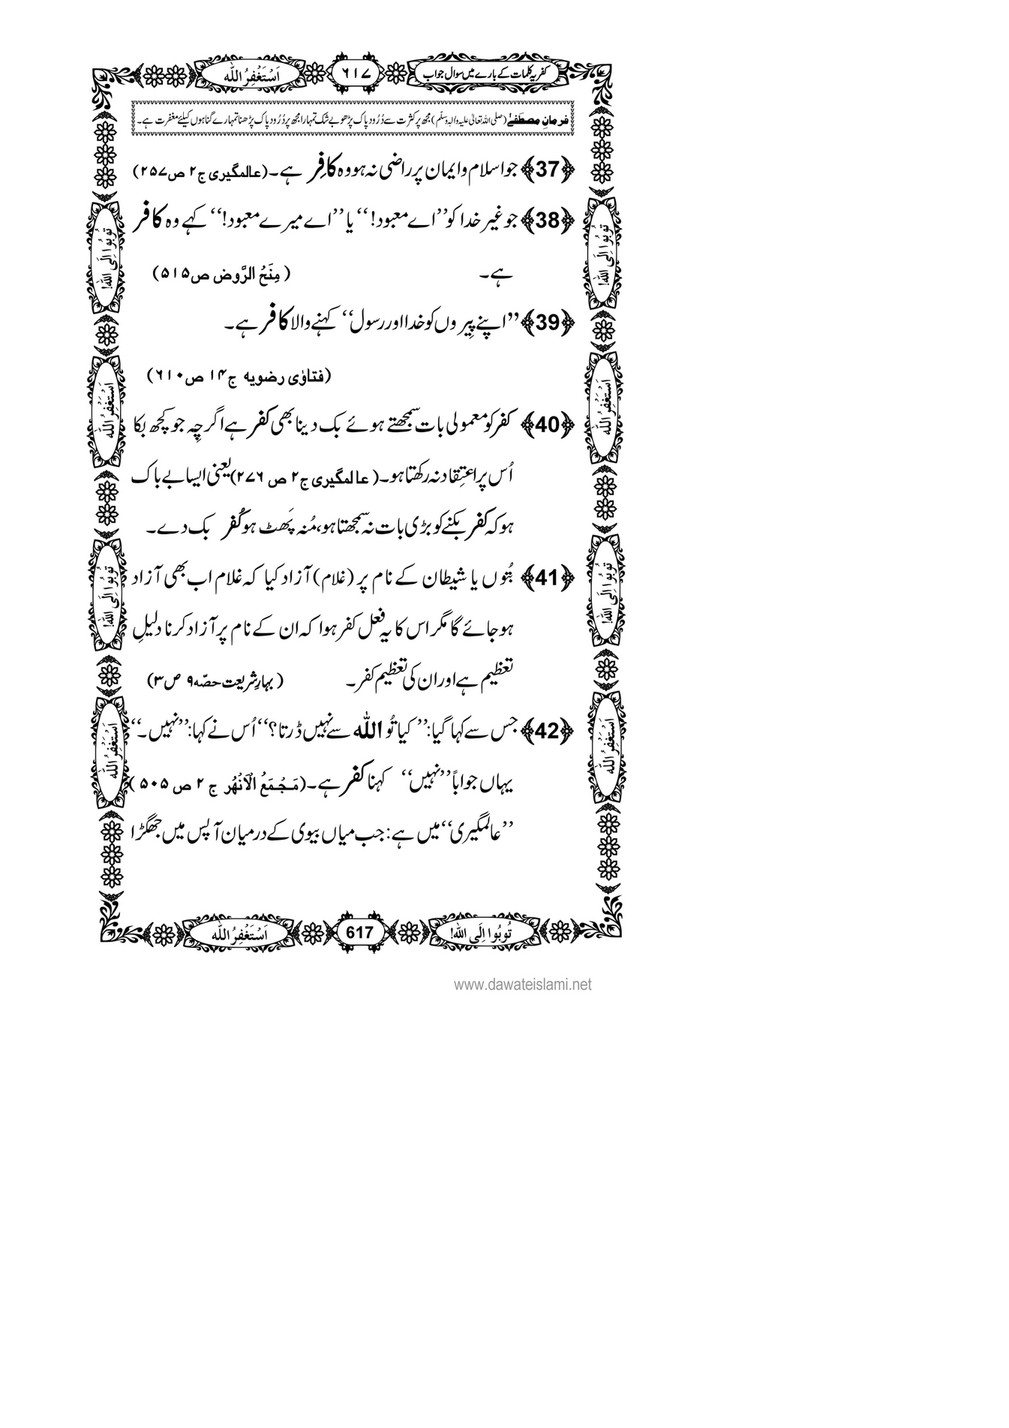 کفریہ کلمات کے بارے میں سوال جواب ٦١٧ اَسْتَغْفِرُ اللّٰہ
فرمانِ مصطفےٰ (صلی اللہ تعالیٰ علیہ واٰلہٖ وسلّم) مجھ پر کثرت سے دُرُود پاک پڑھو بے شک تمہارا مجھ پر دُرُود پاک پڑھنا تمہارے گناہوں کیلئے مغفرت ہے۔
﴿37﴾ جو اسلام و ایمان پر راضی نہ ہو وہ کافِر ہے۔ (عالمگیری ج۲ ص۲۵۷)
﴿38﴾ جو غیر خدا کو ’’اے معبود!‘‘ یا ’’اے میرے معبود!‘‘ کہے وہ کافر
ہے۔ (مِنَحُ الرَّوض ص۵۱۵)
﴿39﴾ ’’اپنے پِیروں کو خدا اور رسول‘‘ کہنے والا کافر ہے۔
(فتاوٰی رضویہ ج۱۴ ص۶۱۰)
﴿40﴾ کفر کو معمولی بات سمجھتے ہوئے بک دینا بھی کفر ہے اگرچِہ جو کچھ بکا
اُس پر اعتِقاد نہ رکھتا ہو۔ (عالمگیری ج۲ ص ۲۷۶) یعنی ایسا بے باک
ہو کہ کفر بکنے کو بڑی بات نہ سمجھتا ہو، مُنہ پَھٹ ہو کُفر بک دے۔
﴿41﴾ بُتوں یا شیطان کے نام پر (غلام) آزاد کیا کہ غلام اب بھی آزاد
ہو جائے گا مگر اس کا یہ فعل کفر ہوا کہ ان کے نام پر آزاد کرنا دلیلِ
تعظیم ہے اور ان کی تعظیم کفر۔ (بہارِ شریعت حصّہ۹ ص۳)
﴿42﴾ جس سے کہا گیا: ’’کیا تُو اللہ سے نہیں ڈرتا؟‘‘ اُس نے کہا: ’’نہیں۔‘‘
یہاں جواباً ’’نہیں‘‘ کہنا کفر ہے۔ (مَجْمَعُ الْاَنْھُر ج ۲ ص ۵۰۵)
’’عالمگیری‘‘ میں ہے: جب میاں بیوی کے درمیان آپس میں جھگڑا
تُوبُوا اِلَی اللّٰہ!
اَسْتَغْفِرُ اللّٰہ
تُوبُوا اِلَی اللّٰہ!
اَسْتَغْفِرُ اللّٰہ
تُوبُوا اِلَی اللّٰہ!
اَسْتَغْفِرُ اللّٰہ
تُوبُوا اِلَی اللّٰہ!
اَسْتَغْفِرُ اللّٰہ
تُوبُوا اِلَی اللّٰہ! 617 اَسْتَغْفِرُ اللّٰہ
www.dawateislami.net